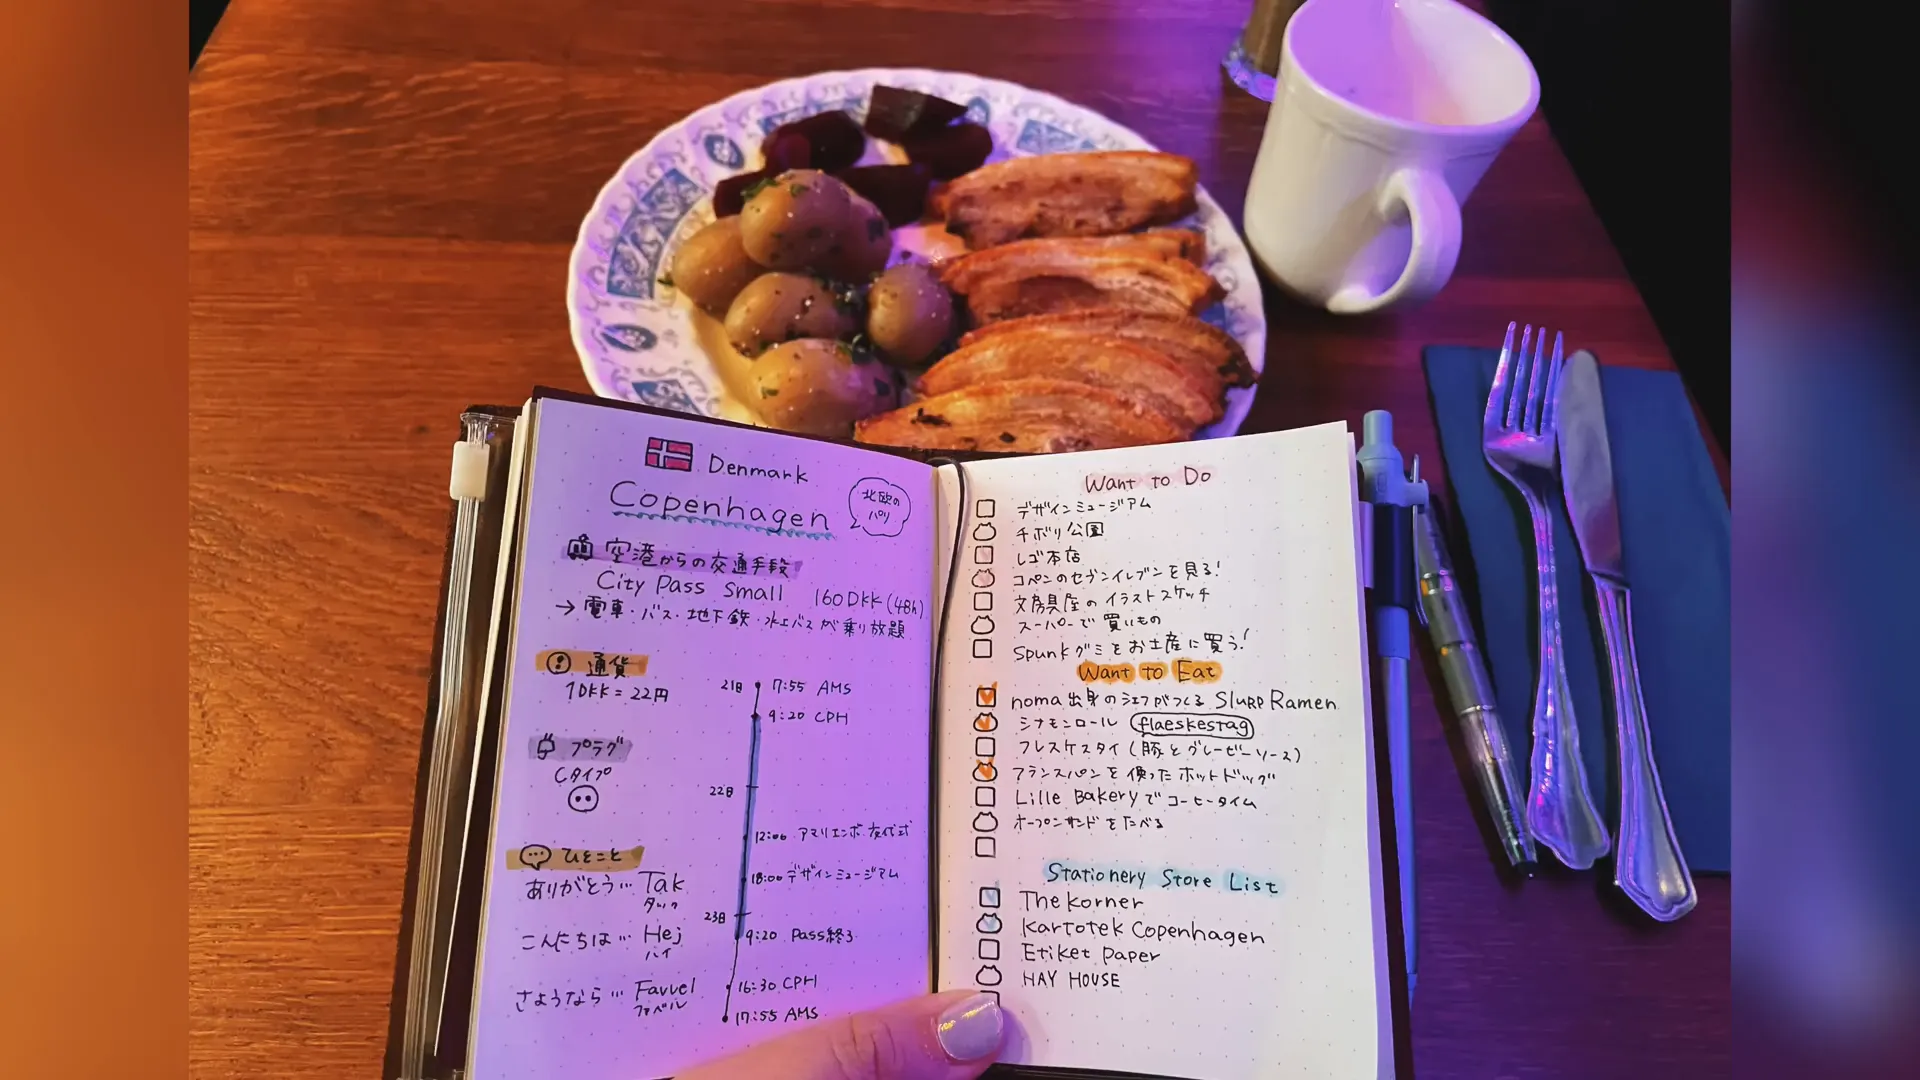 Denmark
Copenhagen
北欧の
パリ
空港からの交通手段
City Pass Small 160DKK(48h)
→電車・バス・地下鉄・水上バスが乗り放題
通貨
1DKK=22円
プラグ
Cタイプ
ひとこと
ありがとう… Tak
タック
こんにちは… Hej
ハイ
さようなら… Favvel
ファベル
21日 7:55 AMS
9:20 CPH
22日
12:00 アマリエンボー交代式
18:00 デザインミュージアム
23日
9:20 Pass終了
16:30 CPH
17:55 AMS
Want to Do
デザインミュージアム
チボリ公園
レゴ本店
コペンのセブンイレブンを見る!
文房具屋のイラストスケッチ
スーパーで買いもの
Spunkグミをお土産に買う!
Want to Eat
noma出身のシェフがつくる Slurp Ramen
シナモンロール flaeskestag
フレスケスタイ(豚とグレービーソース)
フランスパンを使ったホットドッグ
Lille Bakeryでコーヒータイム
オープンサンドをたべる
Stationery Store List
The Korner
Kartotek Copenhagen
Etiket Paper
HAY HOUSE